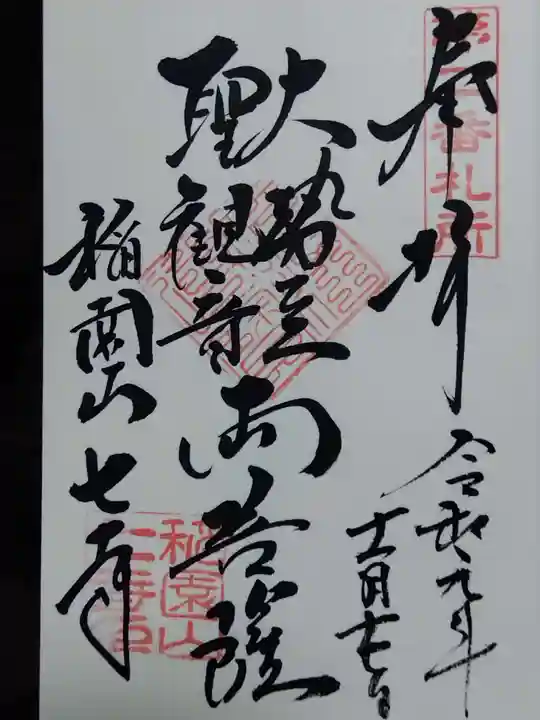 奉拝
令和元年
十一月十七日
大勢至
聖観音
両菩薩
稲園山 七寺
番札所
稲園山